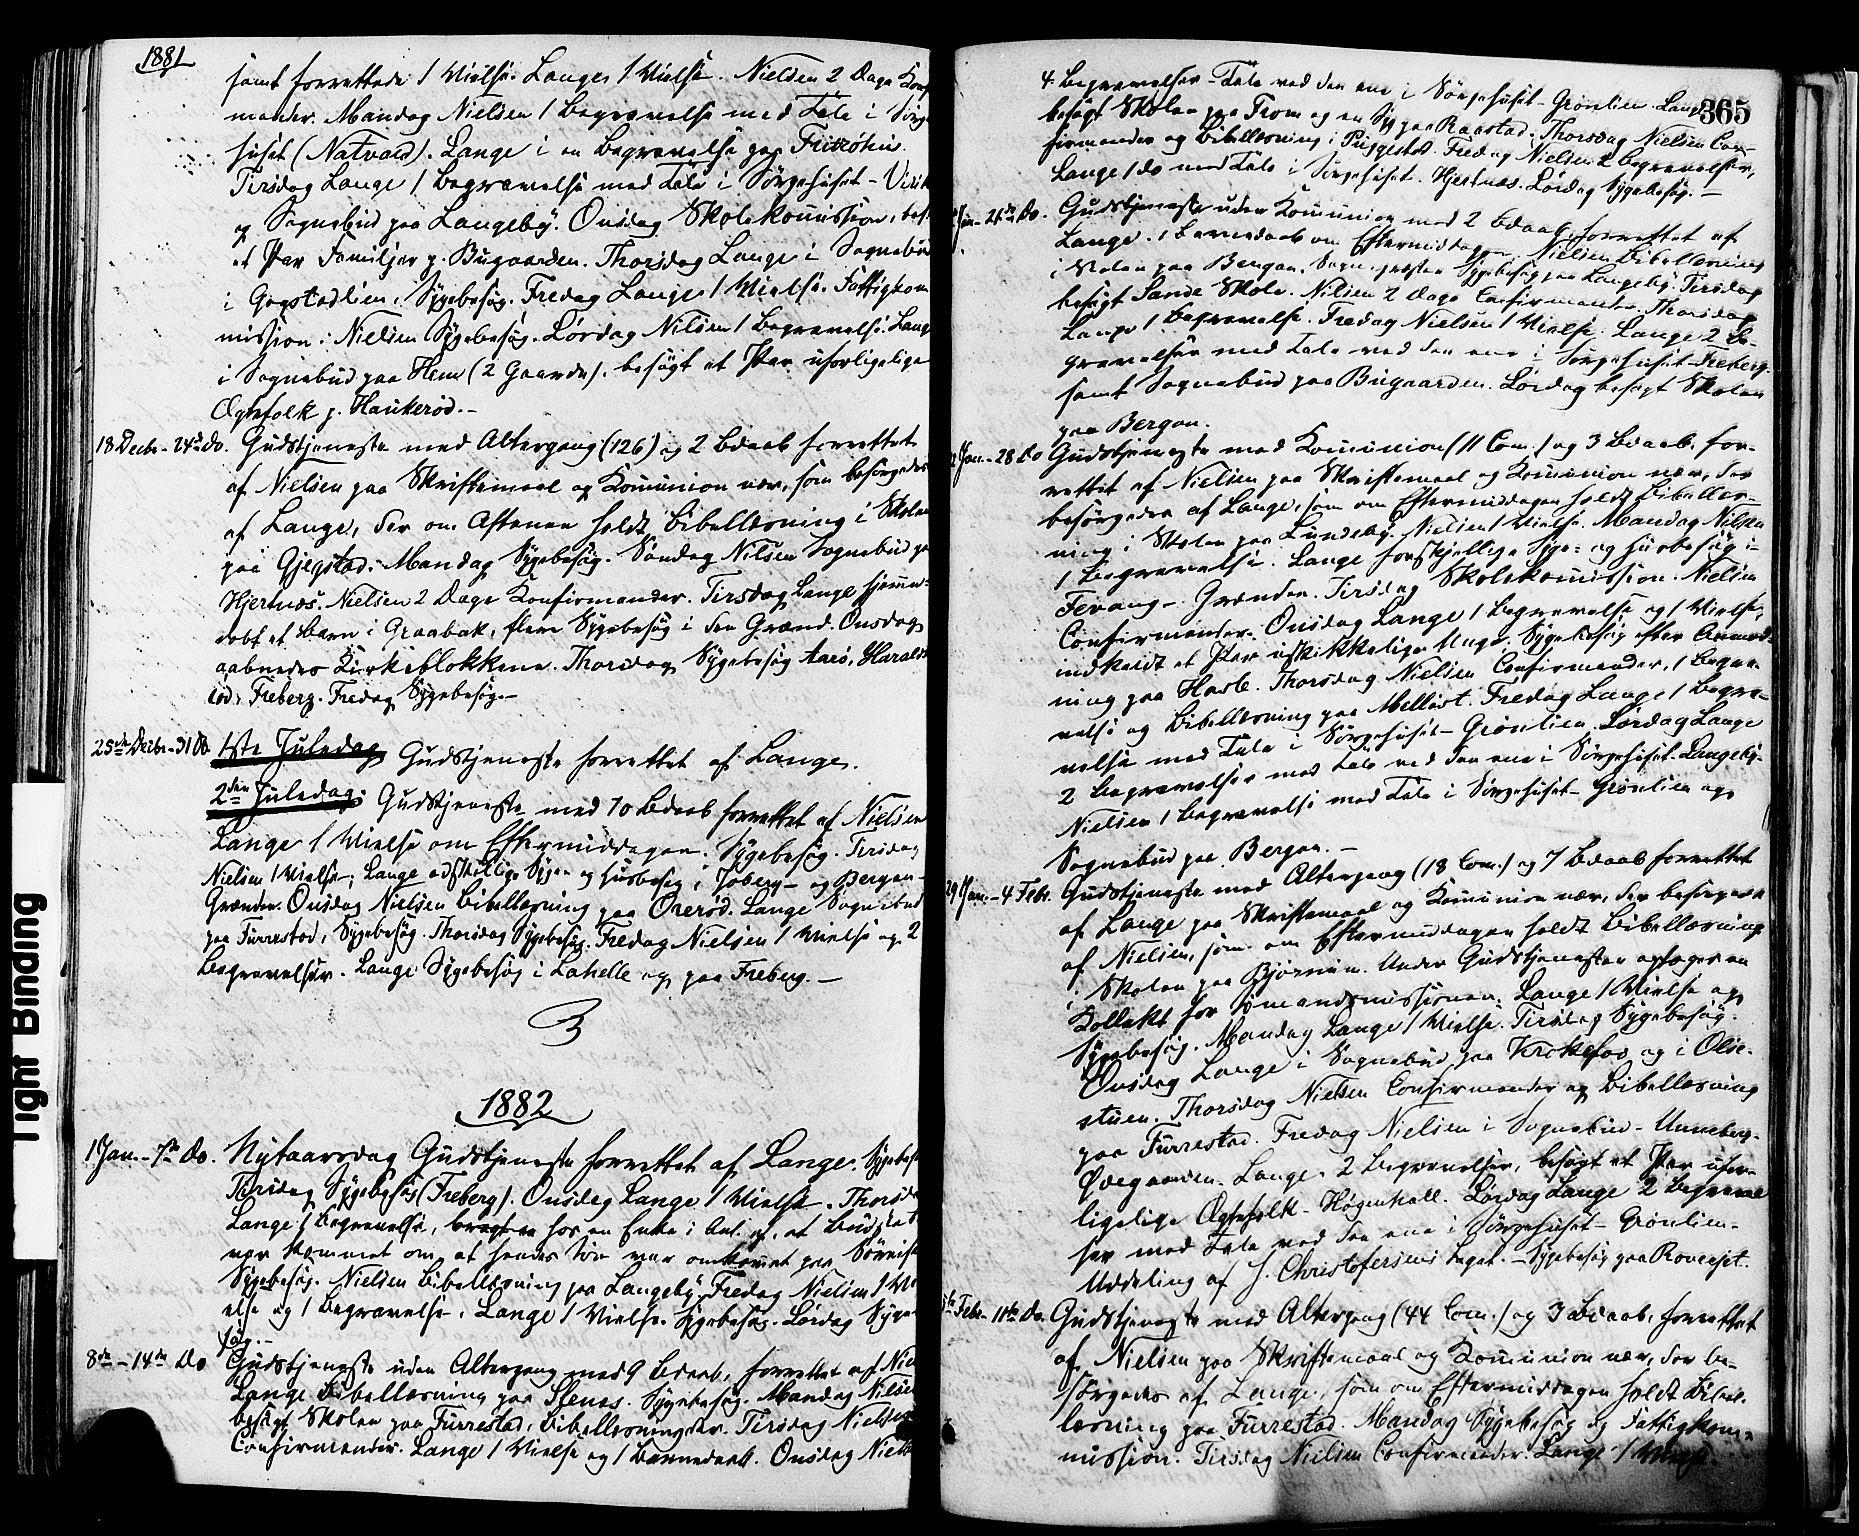 1881
samt forrettede 1 Vielse. Lange 1 Vielse. Nielsen 2 Dage Konf
mander. Mandag Nielsen 1 Begravelse med Tale i Sörge
huset (Natvald). Lange i en Begravelse paa Fritzöhus.
Tirsdag Lange 1 Begravelse med Tale i Sörgehuset - Virik
og Sognebud paa Langeby. Onsdag Skolekommission, bes.
et Par Familjer p. Bugaarden. Thorsdag Lange i Sognebud
i Gogstadlien, Sygebesög. Fredag Lange 1 Vielse. Fattigkom
mission. Nielsen Sygebesög. Lördag Nilsen 1 Begravelse. Lange
i Sognebud paa Hem (2 Gaarde). besögt et Par uforligelige
Ægtefolk p. Haukeröd.-
18 Decbr - 24de Do. Gudstjeneste med Altergang (126) og 2 Bdaab forrettet
af Nielsen paa Skriftemaal og Kommunion nær, som besörgedes
af Lange, der om Aftenen holdt Bibellæsning i Skolen
paa Gjegstad. Mandag Sygebesög. Söndag Nilsen Sognebud paa
Hjertnæs. Nielsen 2 Dage Konfirmander. Tirsdag Lange hjemme-
döbt et Barn i Graabæk, flere Sygebesög i den Grænd. Onsdag
aabnedes Kirkeblokkene. Thorsdag Sygebesög Aarö, Haralds
röd, Freberg. Fredag Sygebesög.-
25de Decbr - 31 Do 1ste Juledag Gudstjeneste forrettet af Lange.
2den Juledag: Gudstjeneste med 10 Bdaab forrettet af Nielsen
Lange 1 Vielse om Eftermiddagen. Sygebesög. Tirsdag
Nielsen 1 Vielse; Lange adskillige Syge- og Husbesög i Joberg- og Bergan-
Grænden. Onsdag Nielsen Bibellæsning paa Oreröd. Lange Sognebud
paa Furrestad, Sygebesög. Thorsdag Sygebesög. Fredag Nielsen 1 Vielse og 2
Begravelser. Lange Sygebesög i Lahelle og paa Freberg.-
1882
1 Jan. - 7de Do. Nytaarsdag Gudstjeneste forrettet af Lange. Sygebesög
Tirsdag Sygebesög (Freberg). Onsdag Lange 1 Vielse. Thorsdag
Lange 1 Begravelse, hos en Enke i Anl. af, at Budskab
var kommet om, at hendes Sön var omkommet paa
Sygebesög. Nielsen Bibellæsning paa Langeby. Fredag Nielsen 1 Vi
else og 1 Begravelse. Lange 1 Vielse. Sygebesög. Lördag Sygebe
sög.-
8de - 14de Do Gudstjeneste uden Altergang med 9 Bdaab, forrettet af Niel
Lange Bibellæsning paa Stenes. Sygebesög. Mandag Nilsen
besögt Skolen paa Furrestad, Bibellæsning der. Tirsdag Nielsen
Confirmander. Lange 1 Vielse og 1 Barnedaab. Onsdag Niels
365
4 Begravelser - Tale ved den ene i Sörgehuset - Grönlien. Lange
besögt Skolen paa From og en Syg paa Raastad. Thorsdag Nielsen Con-
firmander og Bibellæsning i Puggested. Fredag Nielsen 2 Begravelser,
Lange 1 do med Tale i Sörgehuset. Hjertnæs. Lördag Sygebesög.-
Jan - 21de Do. Gudstjeneste uden Kommunion med 2 Bdaab, forrettet af
Lange. 1 Barnedaab om Eftermiddag. Nielsen Bibellæsning
i Skolen paa Bergan. Sognepresten Sygebesög paa Langeby. Tirsdag
besögt Sande Skole. Nilsen 2 Dage Confirmander. Thorsdag
Lange 1 Begravelse. Fredag Nielsen 1 Vielse. Lange 2 Be-
gravelser med Tale ved den ene i Sörgehuset - Freberg.
samt Sognebud paa Bugaarden. Lördag besögt Skolen
paa Bergan.
Jan. - 28 Do Gudstjeneste med Kommunion (11 Com.) og 3 Bdaab, for-
rettet af Nielsen paa Skriftemaal og Kommunion nær, der
besörgedes af Lange, som om Eftermiddagen holdt Bibellæs-
ning i Skolen paa Lundeby. Nielsen 1 Vielse. Mandag Nilsen
1 Begravelse. Lange forskjellige Syge- og Husbesög i
Fevang - Grænden. Tirsdag Skolekommission. Nielsen
Confirmander. Onsdag Lange 1 Begravelse og 1 Vielse,
indkaldt et Par uskikkelige Unge. Sygebesög efter Anmod-
ning paa Hasle. Thorsdag Nielsen Confirmander, 1 Begra-
velse og Bibellæsning paa Mellöst. Fredag Lange 1 Begra-
velse med Tale i Sörgehuset - Grönlien. Lördag Lange
2 Begravelser med Tale ved den ene i Sörgehuset - Langeby.
Nielsen 1 Begravelse med Tale i Sörgehuset - Grönlien og
Sognebud paa Bergan.-
29 Jan. - 4 Febr. Gudstjeneste med Altergang (18 Com.) og 7 Bdaab forrettet
af Lange paa Skriftemaal og Kommunion nær, der besörgedes
af Nielsen, som om Eftermiddagen holdt Bibellæsning
i Skolen paa Bjørnum. Under Gudstjenesten optoges en
Kollekt for Sömandsmissionen. Lange 1 Vielse og
Sygebesög. Mandag Lange 1 Vielse. Tirsdag Sygebesög.
Onsdag Lange i Sognebud paa Krokefos og i Olse-
stuen. Thorsdag Nielsen Confirmander og Bibellæsning
paa Furrestad. Fredag Nielsen i Sognebud - Unneberg-
Ødegaarden. Lange 2 Begravelser, besögt et Par ufor-
ligelige Ægtefolk - Høgenhall. Lördag Lange 2 Begravel
ser med Tale ved den ene i Sörgehuset - Grönlien -
Uddeling af J. Christofersens Legat. - Sygebesög paa Roverjet.
Febr. - 11te Do. Gudstjeneste med Altergang (44 Com.) og 3 Bdaab, forrettet
af Nielsen paa Skriftemaal og Kommunion nær, der be-
sörgedes af Lange, som om Eftermiddagen holdt Bibel-
læsning paa Furrestad. Mandag Sygebesög og Fattigkom-
mission. Tirsdag Nielsen Confirmander. Lange 1 Vielse.
Tight Binding